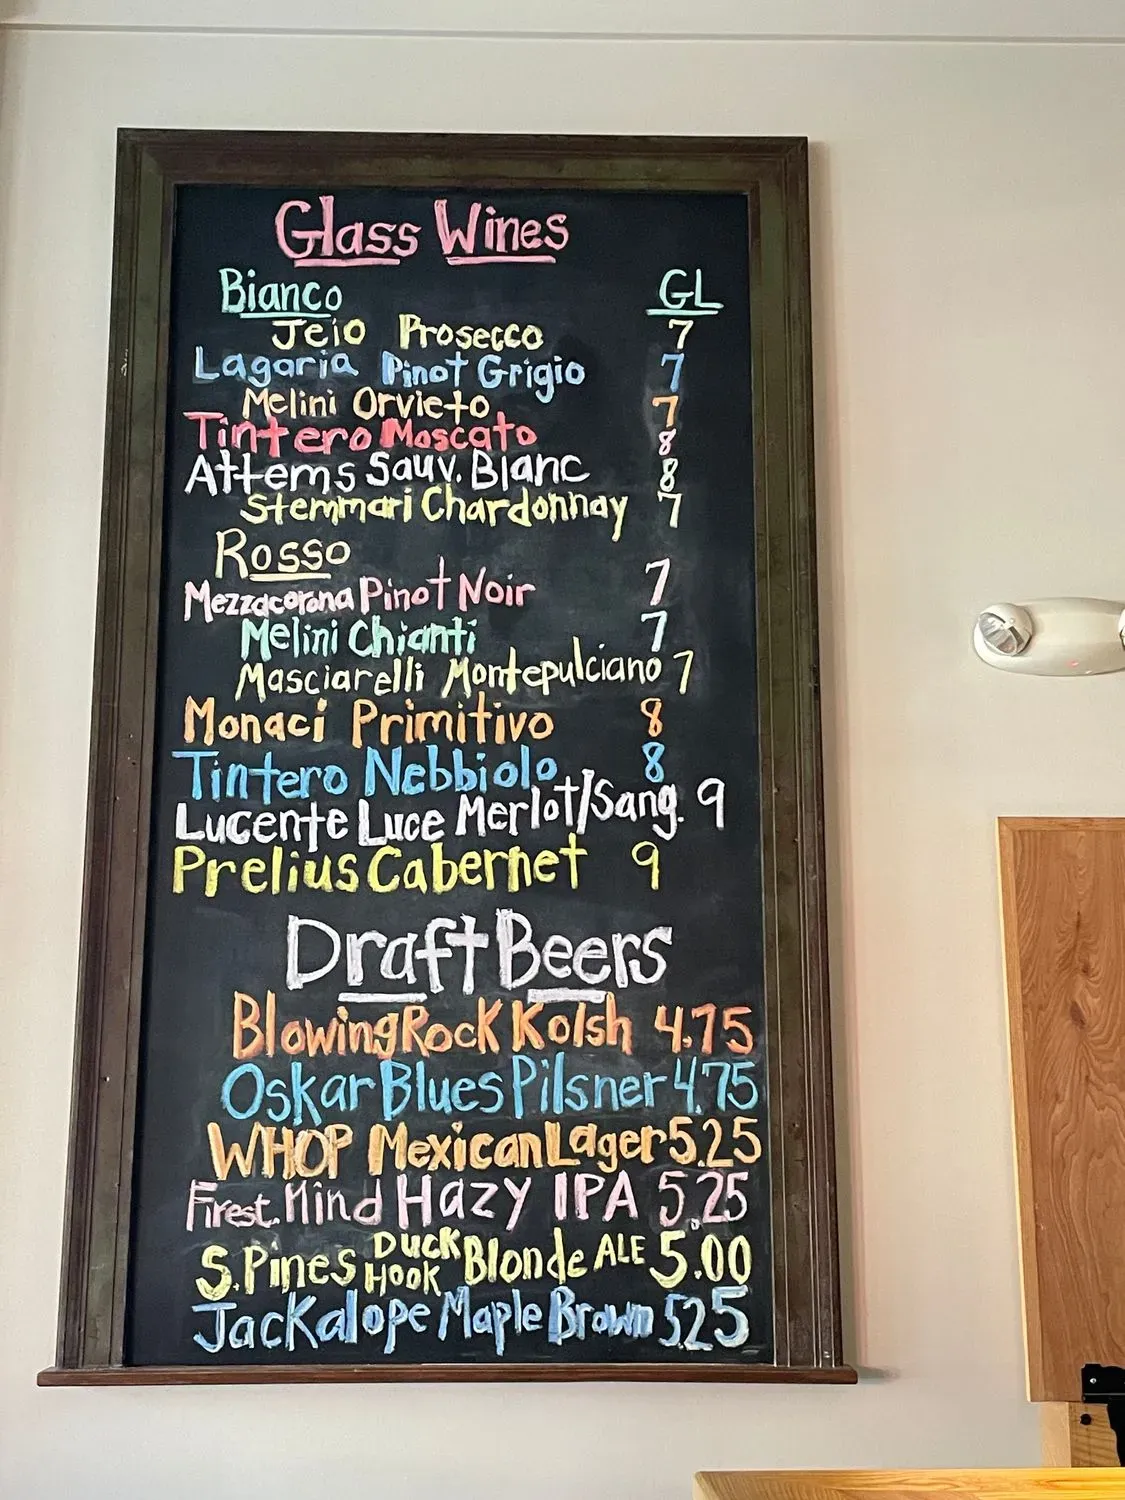 Glass Wines
Bianco GL
Jeio Prosecco 7
Lagaria Pinot Grigio 7
Melini Orvieto 7
Tintero Moscato 8
Attems Sauv. Blanc 8
Stemmari Chardonnay 7
Rosso
Mezzacorona Pinot Noir 7
Melini Chianti 7
Masciarelli Montepulciano 7
Monaci Primitivo 8
Tintero Nebbiolo 8
Lucente Luce Merlot/Sang. 9
Prelius Cabernet 9
Draft Beers
Blowing Rock Kolsh 4.75
Oskar Blues Pilsner 4.75
WHOP Mexican Lager 5.25
Firest. Mind Hazy IPA 5.25
S. Pines Duck Hook Blonde ALE 5.00
Jackalope Maple Brown 525